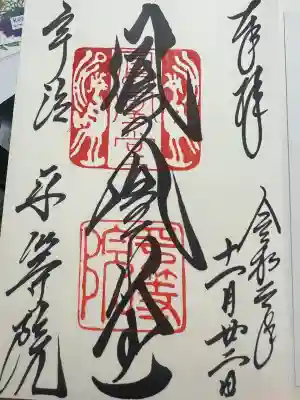 奉拝
令和元年
十一月廿二日
鳳凰堂
宇治
平等院